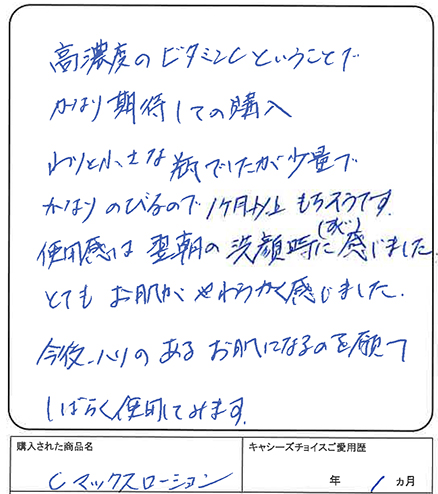 高濃度のビタミンCということで
かなり期待しての購入
わりと小さな瓶でしたが少量で
かなりのびるので1ケ月以上もちそうです.
使用感は翌朝の洗顔時に(すぐ)感じました.
とてもお肌がやわらかく感じました.
今後ハリのあるお肌になるのを願って
しばらく使用してみます.
購入された商品名 キャシーズチョイスご愛用歴
Cマックスローション 年 1 ヵ月